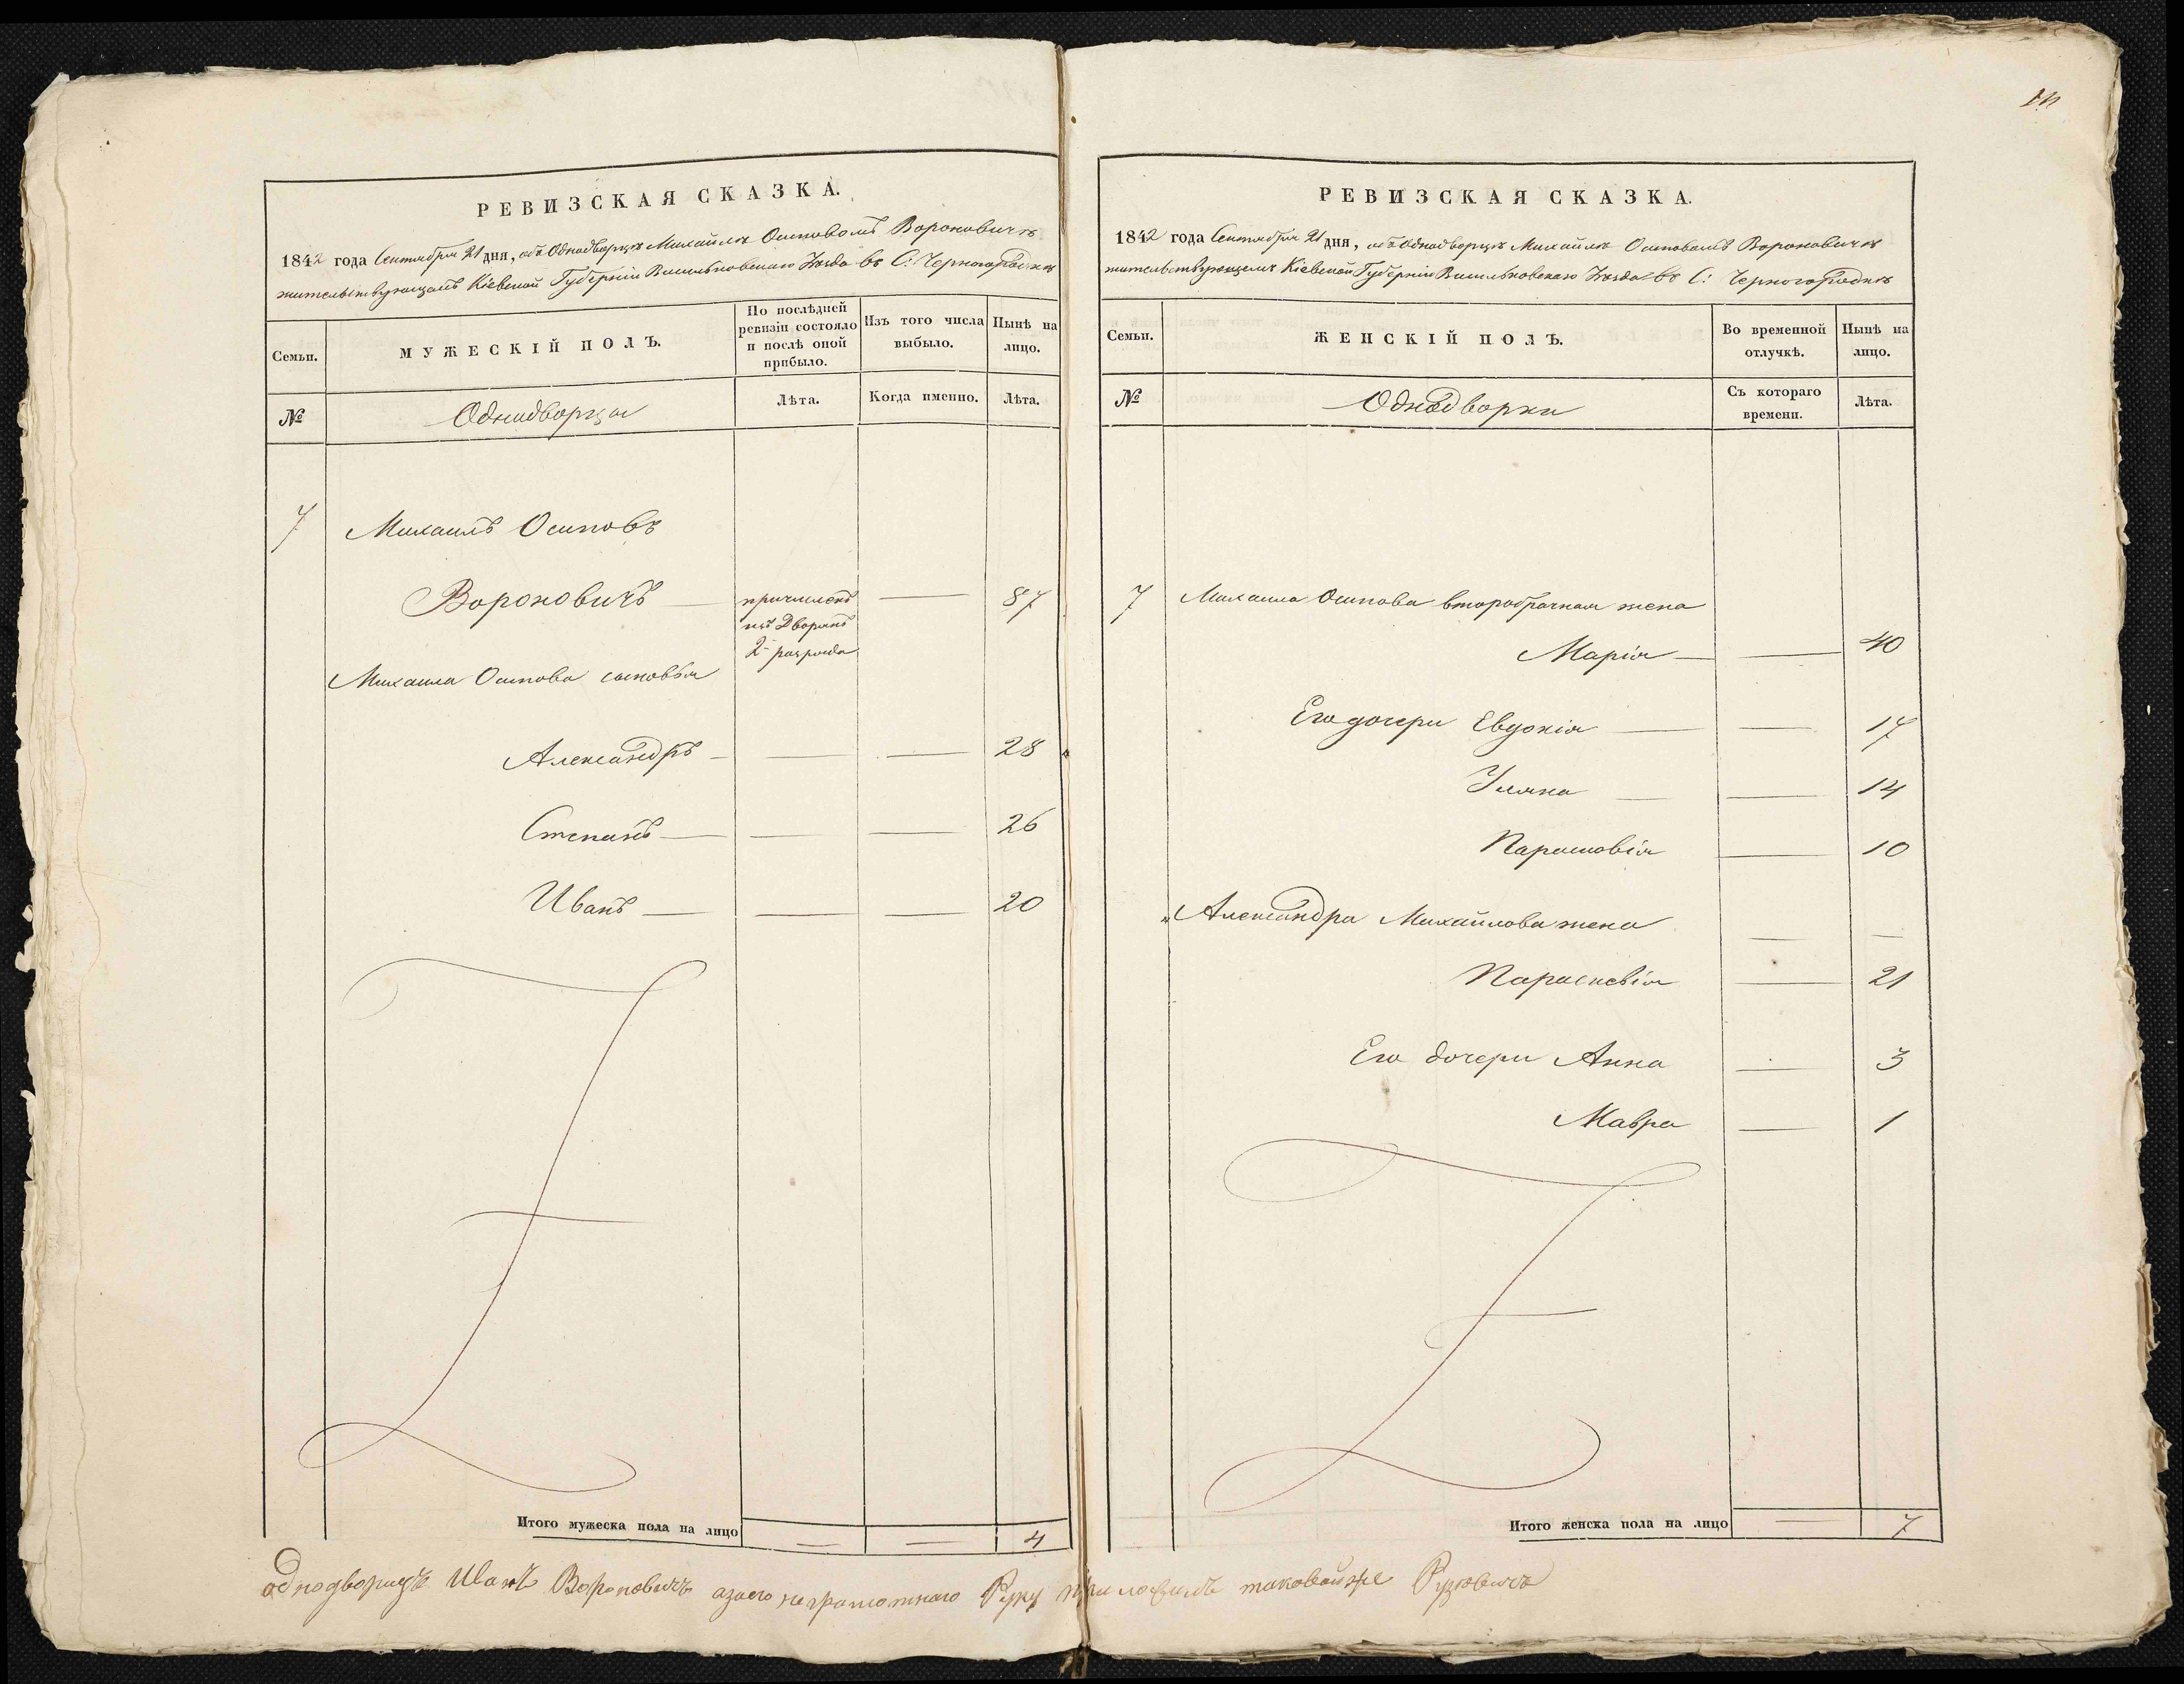 РЕВИЗСКАЯ СКАЗКА.
1842 года Сентября 21 дня, объ Однодворцѣ Михайлѣ Осиповомъ Вороновичѣ
жительствующемъ Кіевской Губерніи Васильковскаго Уѣзда въ С: Черногородкѣ
Семьи.
МУЖЕСКІЙ ПОЛЪ.
По послѣдней
ревизіи состояло
и послѣ оной
прибыло.
Изъ того числа
выбыло.
Нынѣ на
лицо.
№
Однодворцы
Лѣта.
Когда именно.
Лѣта.
7 Михаилъ Осиповъ
Вороновичъ — причисленъ — 87
изъ Дворянъ
2 разряда
Михаила Осипова сыновья
Александръ — — — 28
Степанъ — — — 26
Иванъ — — — 20
Итого мужеска пола на лицо — — 4
14
РЕВИЗСКАЯ СКАЗКА.
1842 года Сентября 21 дня, объ Однодворцѣ Михайлѣ Осиповомъ Вороновичѣ
жительствующемъ Кіевской Губерніи Васильковскаго Уѣзда въ С: Черногородкѣ
Семьи.
ЖЕНСКІЙ ПОЛЪ.
Во временной
отлучкѣ.
Нынѣ на
лицо.
№
Однодворки
Съ котораго
времени.
Лѣта.
7 Михаила Осипова второбрачная жена
Марія — — 40
Его дочери Евдокія — — 17
Уляна — — 14
Парасковія — 10
Александра Михайлова жена — —
Параскевія — 21
Его дочери Анна — 3
Мавра — 1
Итого женска пола на лицо — 7
однодворецъ Иванъ Вороновичъ азаего неграмотнаго Руку приложилъ таковойже Рузювичъ